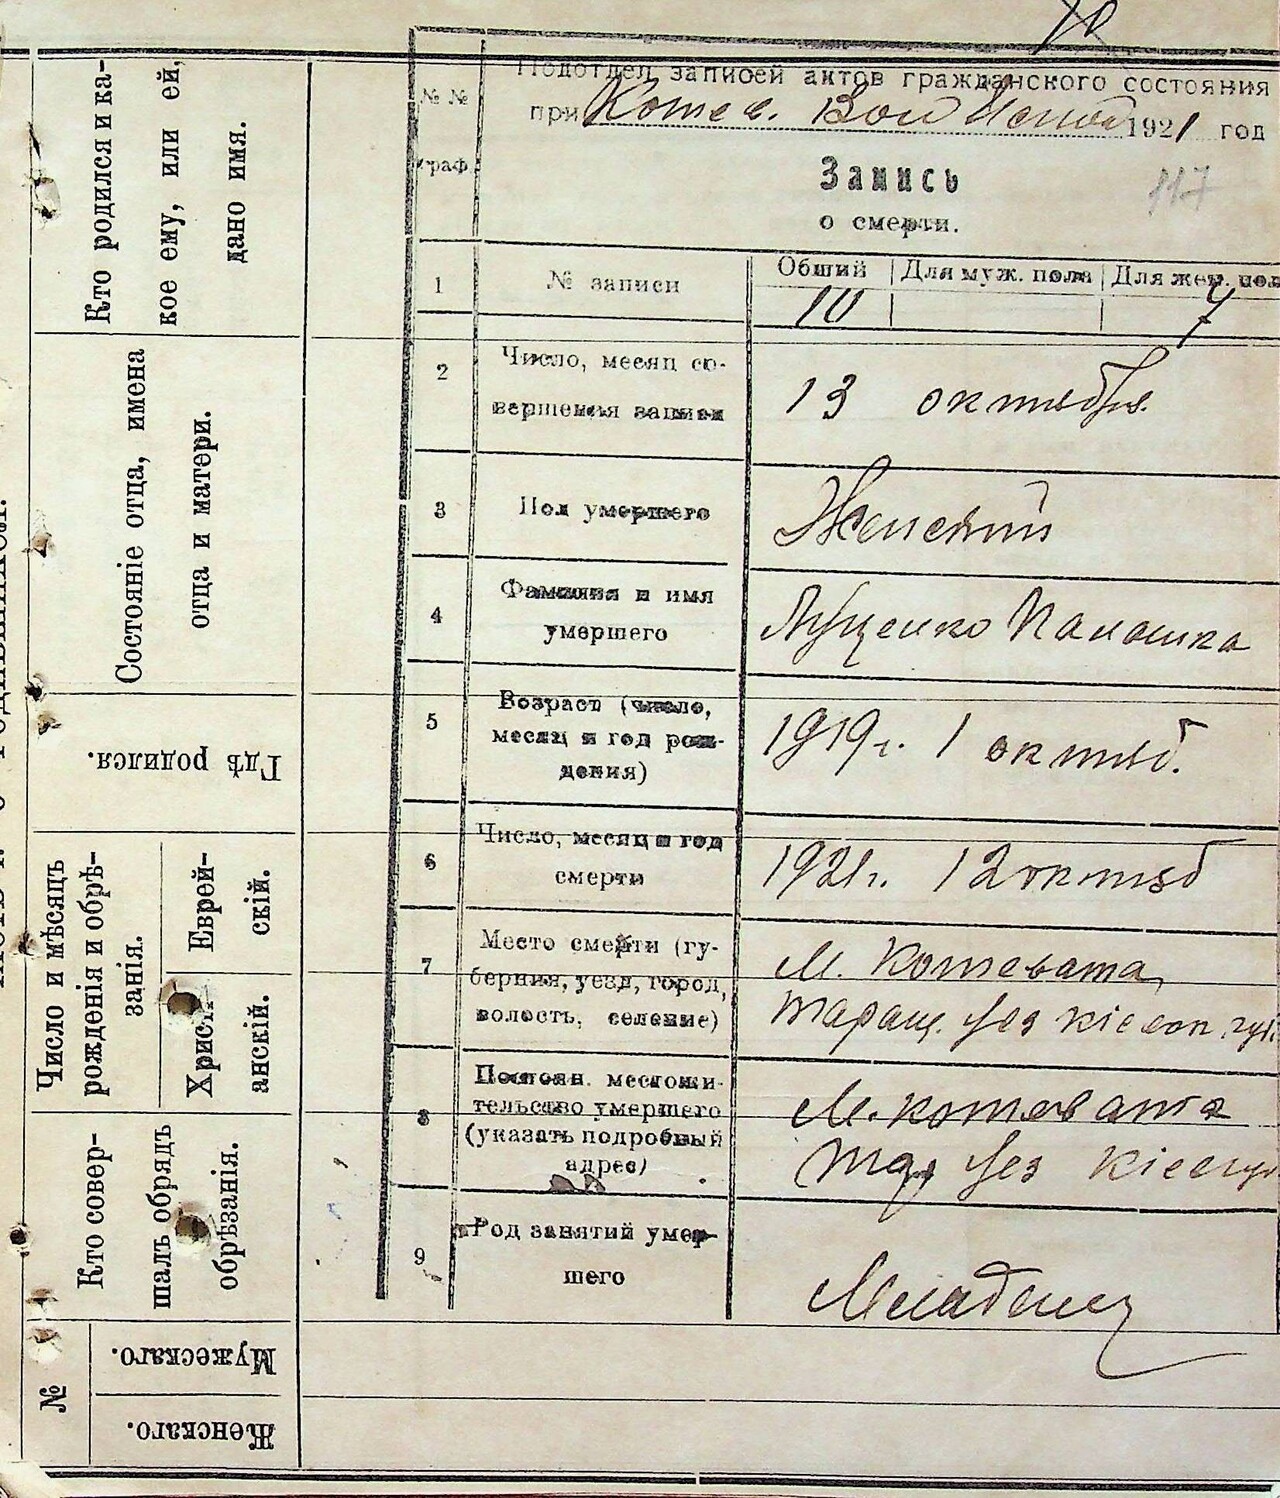 70
Подотдел записей актов гражданского состояния
при Котев. Вол 1921 год
Запись
о смерти.
117
№ № граф.
1 № записи Общий Для муж. пола Для жен. пол
10 7
2 Число, месяц со-
вершения записи
13 октября
3 Пол умершего Женский
4 Фамилия и имя
умершего
Луценко Палашка
5 Возраст (число,
месяц и год рож-
дения)
1919 г. 1 октяб.
6 Число, месяц и год
смерти
1921 г. 12 октяб
7 Место смерти (гу-
берния, уезд, город,
волость, селение)
М. Котевата,
Таращ. уез кіевск. губ.
8 Постоян. местожи-
тельство умершего
(указать подробный
адрес)
М. Котевата
Тар уез
9 Род занятий умер-
шего
Младенец
Кто родился и ка-
кое ему, или ей,
дано имя.
Состояніе отца, имена
отца и матери.
Гдѣ родился.
Число и мѣсяцъ
рожденія и обрѣ-
занія.
Христі
анскій.
Еврей-
скій.
Кто совер-
шалъ обрядъ
обрѣзанія.
№
Мужескаго.
Женскаго.